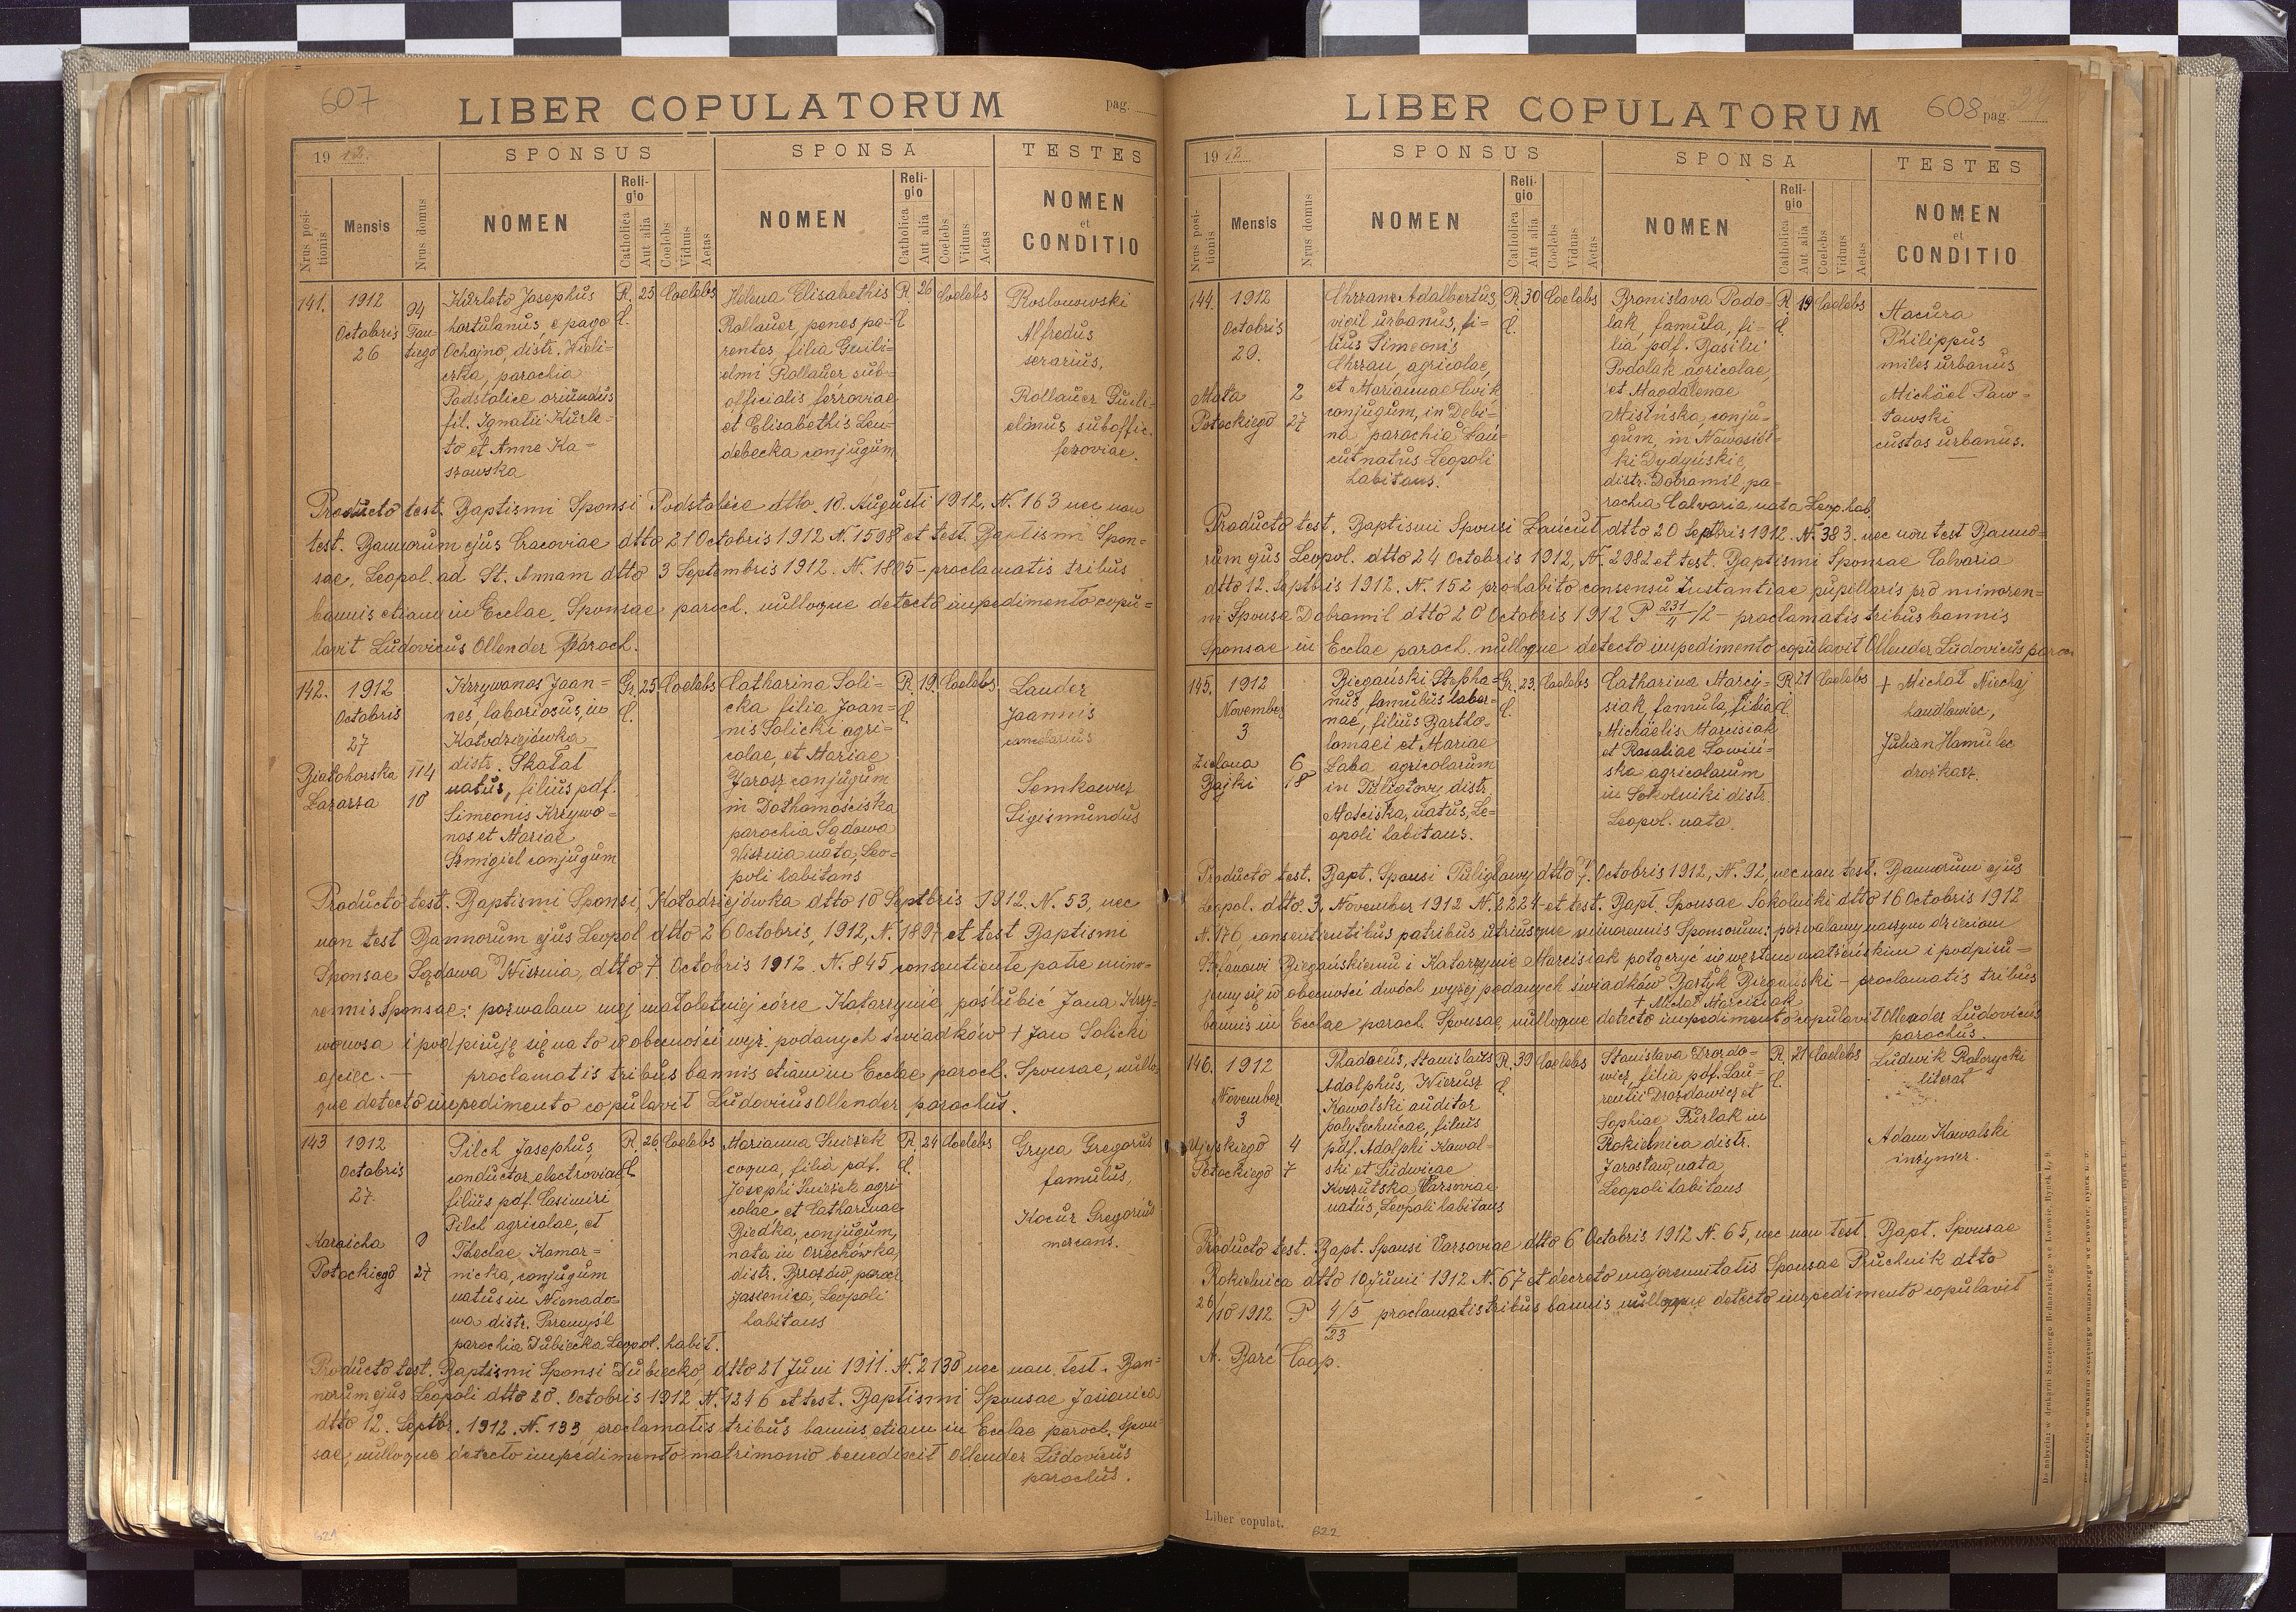 607
LIBER COPULATORUM
pag.
1912.
SPONSUS
SPONSA
TESTES
Nrus positionis
Mensis
Nrus domus
NOMEN
Religio
Catholica
Aut alia
Coelebs
Viduus
Aetas
NOMEN
Religio
Catholica
Aut alia
Coelebs
Viduus
Aetas
NOMEN
et
CONDITIO
141.
1912
Octobris
26
94
Kurleto Josephus
hortulanus, e pago
Ochojno, distr. Wieli-
czka, parochia
Podstolice oriundus
fil. Ignatii Kurle-
to et Anne Ka-
szowska
R. c.
25
Coelebs
Helena Elisabethis
Rollauer, penes pa-
rentes, filia Guili-
elmi Rollauer sub-
officialis ferroviae
et Elisabethis Leu-
debecka conjugum
R. c.
26
Coelebs
Alfredus
serarius,
Rollauer Guili-
elmus suboffic.
feroviae.
Producto test. Baptismi Sponsi Podstolice dtto 10. Augusti 1912, N. 163 nec non
test. Bannorum ejus Cracoviae dtto 21 Octobris 1912 N. 1598 et test. Baptismi Spon=
sae, Leopol. ad St. Annam dtto 3 Septembris 1912. N. 1805 - proclamatis tribus
bannis etiam in Ecclae. Sponsae paroch. nulloque detecto impedimento copu=
lavit Ludovicus Ollender Paroch.
142.
1912
Octobris
27
Białohorska 114
Łazarza 10
Krzywonos Joan=
nes, laboriosus, in
Kołodziejówka
distr. Skałat
natus, filius pdf.
Simeonis Krzywo=
nos et Mariae
Szmigiel conjugum
Gr. c.
25
Coelebs
Catharina Soli-
cka filia Joan=
nis Solicki agri-
colae, et Mariae
Jarosz conjugum
in Dołhomościska
parochia Sądowa
Wisznia nata, Leo-
poli habitans
R. c.
19.
Coelebs
Lauder
Joannis
Semkowicz
Sigismundus
Producto test. Baptismi Sponsi, Kołodziejówka dtto 10 Septbris 1912. N. 53, nec
non test Bannorum ejus Leopol dtto 26 Octobris, 1912, N. 1897 et test Baptismi
Sponsae Sądowa Wisznia, dtto 7 Octobris 1912. N. 845 consentiente patre mino-
rennis Sponsae: pozwalam mej małoletniej córce Katarzynie, poślubić Jana Krzy-
wonosa i podpisuję się na to w obecności wyż. podanych świadków + Jan Solicki
ojciec. — proclamatis tribus bannis etiam in Ecclae paroch. Sponsae, nullo-
que detecto impedimento copulavit Ludovicus Ollender parochus.
143
1912
Octobris
27.
Potockiego 27
Pilch Josephus,
conductor electroviae
filius pdf. Casimiri
Pilch agricolae, et
Theclae Komar=
nicka, conjugum
natus in Nienado=
wa distr. Przemyśl
parochia Dubiecko Leopol. habit.
R. c.
26.
Coelebs
Marianna Śnieżek
coqua, filia pdf.
Josephi Śnieżek agri
colae et Catharinae
Biedka, conjugum,
nata in Orzechówka,
distr. Brzozów, paroch.
Jasienica, Leopoli
habitans
R. c.
24
Coelebs
Gryca Gregorius
famulus,
Kocur Gregorius
mercans.
Producto test. Baptismi Sponsi Dubiecko dtto 21 Juni 1911. N. 2130 nec non test. Ban=
norum ejus Leopoli dtto 20. Octobris 1912 N. 1246 et test. Baptismi Sponsae Jasienica
dtto 12. Septbr. 1912. N. 133 proclamatis tribus bannis etiam in Ecclae paroch. Spon-
sae, nulloque detecto impedimento matrimonio benedixit Ollender Ludovicus
parochus.
621
LIBER COPULATORUM
608
pag.
1912
SPONSUS
SPONSA
TESTES
Nrus positionis
Mensis
Nrus domus
NOMEN
Religio
Catholica
Aut alia
Coelebs
Viduus
Aetas
NOMEN
Religio
Catholica
Aut alia
Coelebs
Viduus
Aetas
NOMEN
et
CONDITIO
144.
1912
Octobris
20.
Mała 2
Potockiego 27
Chrzan Adalbertus
vigil urbanus, fi-
lius Simeonis
Chrzan, agricolae,
et Mariannae Ćwik
conjugum, in Dębi-
na parochia Łań-
cut natus Leopoli
habitans.
R. c.
30
Coelebs
Bronislava Podo-
lak, famula, fi-
lia pdf. Basilii
Podolak agricolae,
et Magdalenae
Misińska, conju-
gum, in Nowosiół-
ki Dydyńskie,
distr. Dobromil, pa-
rochia Calvaria nata Leop. hab.
R. c.
19
Coelebs
Macura
Philippus
miles urbanus
Michäel Paw-
łowski
custos urbanus.
Producto test. Baptismi Sponsi Łańcut dtto 20 Septbris 1912. N. 383. nec non test Banno=
rum ejus Leopol. dtto 24 Octobris 1912, N. 2982 et test. Baptismi Sponsae Calvaria
dtto 12. Septbris 1912. N. 152 prohabito consensu Instantiae pupillaris pro minoren=
ni Sponsa Dobromil dtto 20 Octobris 1912 P 231/11 /2 - proclamatis tribus bannis
Sponsae in Ecclae paroch. nulloque detecto impedimento copulavit Ollender Ludovicus paroch
145.
1912
November
3
Zielona 6
Bajki 18
Biegański Stepha-
nus, famulus labor-
nae, filius Bartho-
lomaei et Mariae
Łaba agricolarum
in Tuligłowy distr.
Mościska, natus, Le-
opoli habitans.
Gr. c.
23.
Coelebs
Catharina Marcy-
siak, famula, filia
Michäelis Marcisiak
et Rosaliae Łowiń-
ska agricolarum
in Sokolniki distr.
Leopol. nata
R. c.
21
Coelebs
+ Michał Niechaj
handlowiec,
Julian Hamulec
drożkarz.
Producto test. Bapt. Sponsi Tuligłowy dtto 7. Octobris 1912, N. 92, nec non test. Bannorum ejus
Leopol. dtto. 3. November 1912 N. 2224 et test. Bapt. Sponsae Sokolniki dtto 16 Octobris 1912
N. 176, consentientibus patribus utriusque minorennis Sponsorum: pozwalamy naszym dzieciom
Stefanowi Biegańskiemu i Katarzynie Marcisiak połączyć się węzłem małżeńskim i podpisu=
jemy się w obecności dwóch wyżej podanych świadków Bartyk Biegański - proclamatis tribus
+ Michał Marcisiak
bannis in Ecclae paroch. Sponsae, nulloque detecto impedimento copulavit Ollender Ludovicus
parochus.
146.
1912
November
3
Ujejskiego 4
Potockiego 7
Thadaeus, Stanislaus
Adolphus, Wierusz
Kowalski auditor
polytechnicae, filius
pdf. Adolphi Kowal-
ski et Ludwicae
Varsoviae
natus, Leopoli habitans
R. c.
39
Coelebs
Stanislava Drozdo-
wicz, filia pdf. Lau-
rentii Drozdowicz et
Sophiae Furlak in
Rokietnica distr.
Jarosław, nata
Leopoli habitans
R. c.
21
Coelebs
Ludwik
literat
Adam Kowalski
inżynier.
Producto test. Bapt. Sponsi Varsoviae dtto 6 Octobris 1912 N. 65, nec non test. Bapt. Sponsae
Rokietnica dtto 10 Junii 1912 N. 67 et decreto majorennitatis Sponsae Pruchnik dtto
26/10 1912 P 4/5 23 proclamatis tribus bannis nulloque detecto impedimento copulavit
A. Barć Coop.
Liber copulat.
622